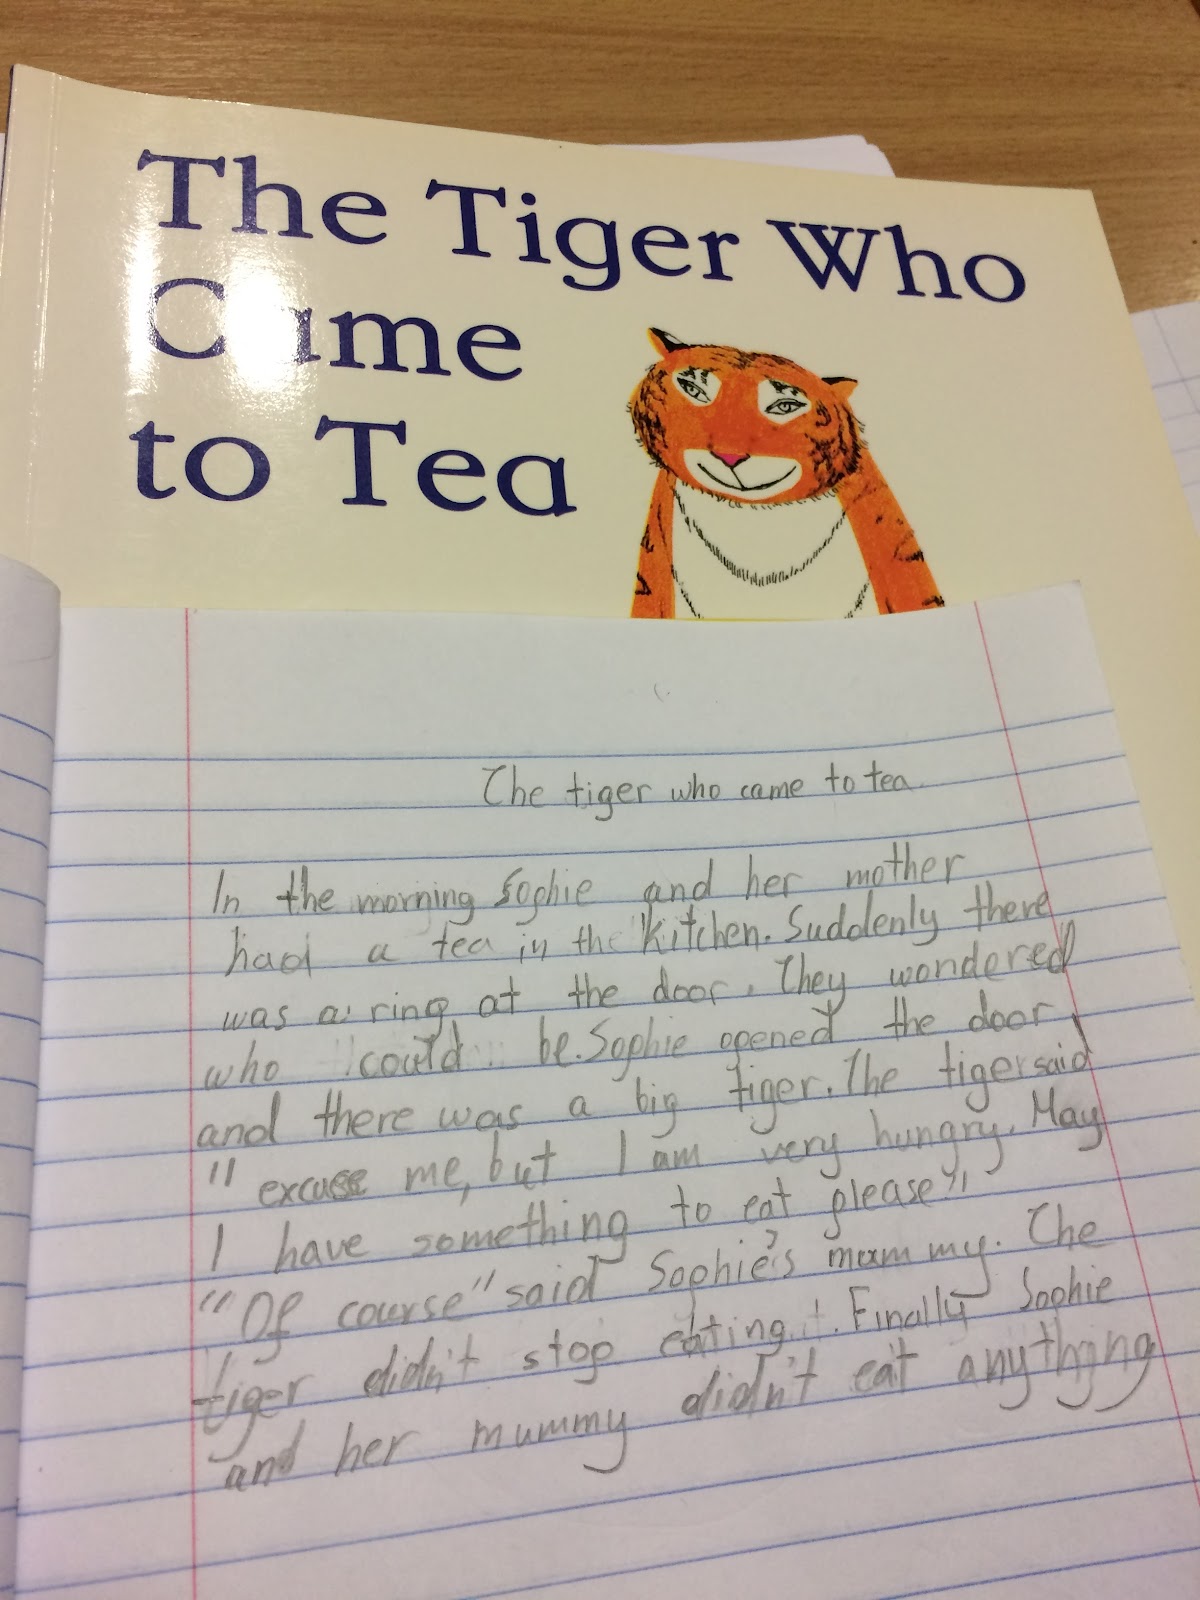 The Tiger Who
Came
to Tea
The tiger who came to tea.
In the morning Sophie and her mother
had a tea in the kitchen. Suddenly there
was a ring at the door. They wondered
who could be. Sophie opened the door
and there was a big tiger. The tiger said
" excuse me, but I am very hungry. May
I have something to eat please"
"Of course" said Sophie's mummy. The
tiger didn't stop eating. Finally Sophie
and her mummy didn't eat anything